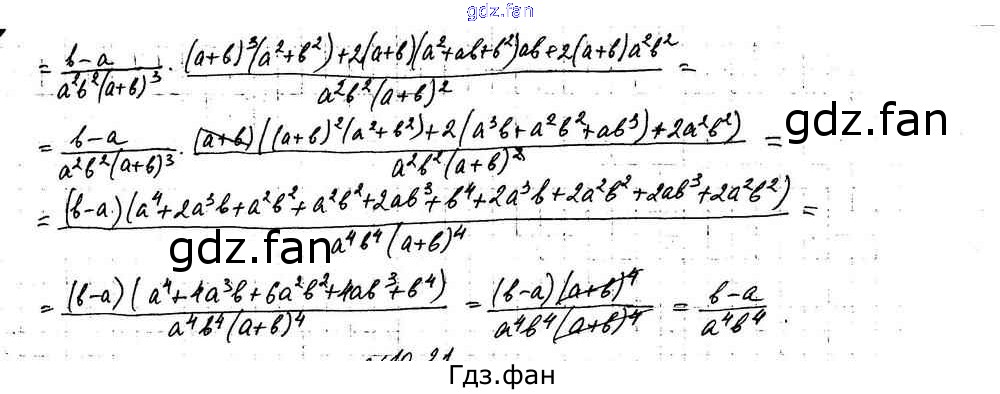 gdz.fan
= \frac{b-a}{a^2b^2(a+b)^3} \cdot \frac{(a+b)^3(a^2+b^2)+2(a+b)(a^2+ab+b^2)ab+2(a+b)a^2b^2}{a^2b^2(a+b)^2} =
= \frac{b-a}{a^2b^2(a+b)^3} \cdot \frac{(a+b)((a+b)^2(a^2+b^2)+2(a^3b+a^2b^2+ab^3)+2a^2b^2)}{a^2b^2(a+b)^2} =
gdz.fan
= \frac{(b-a)(a^4+2a^3b+a^2b^2+a^2b^2+2ab^3+b^4+2a^3b+2a^2b^2+2ab^3+2a^2b^2)}{a^4b^4(a+b)^4} =
gdz.fan
= \frac{(b-a)(a^4+4a^3b+6a^2b^2+4ab^3+b^4)}{a^4b^4(a+b)^4} = \frac{(b-a)(a+b)^4}{a^4b^4(a+b)^4} = \frac{b-a}{a^4b^4}.
Гдз.фан